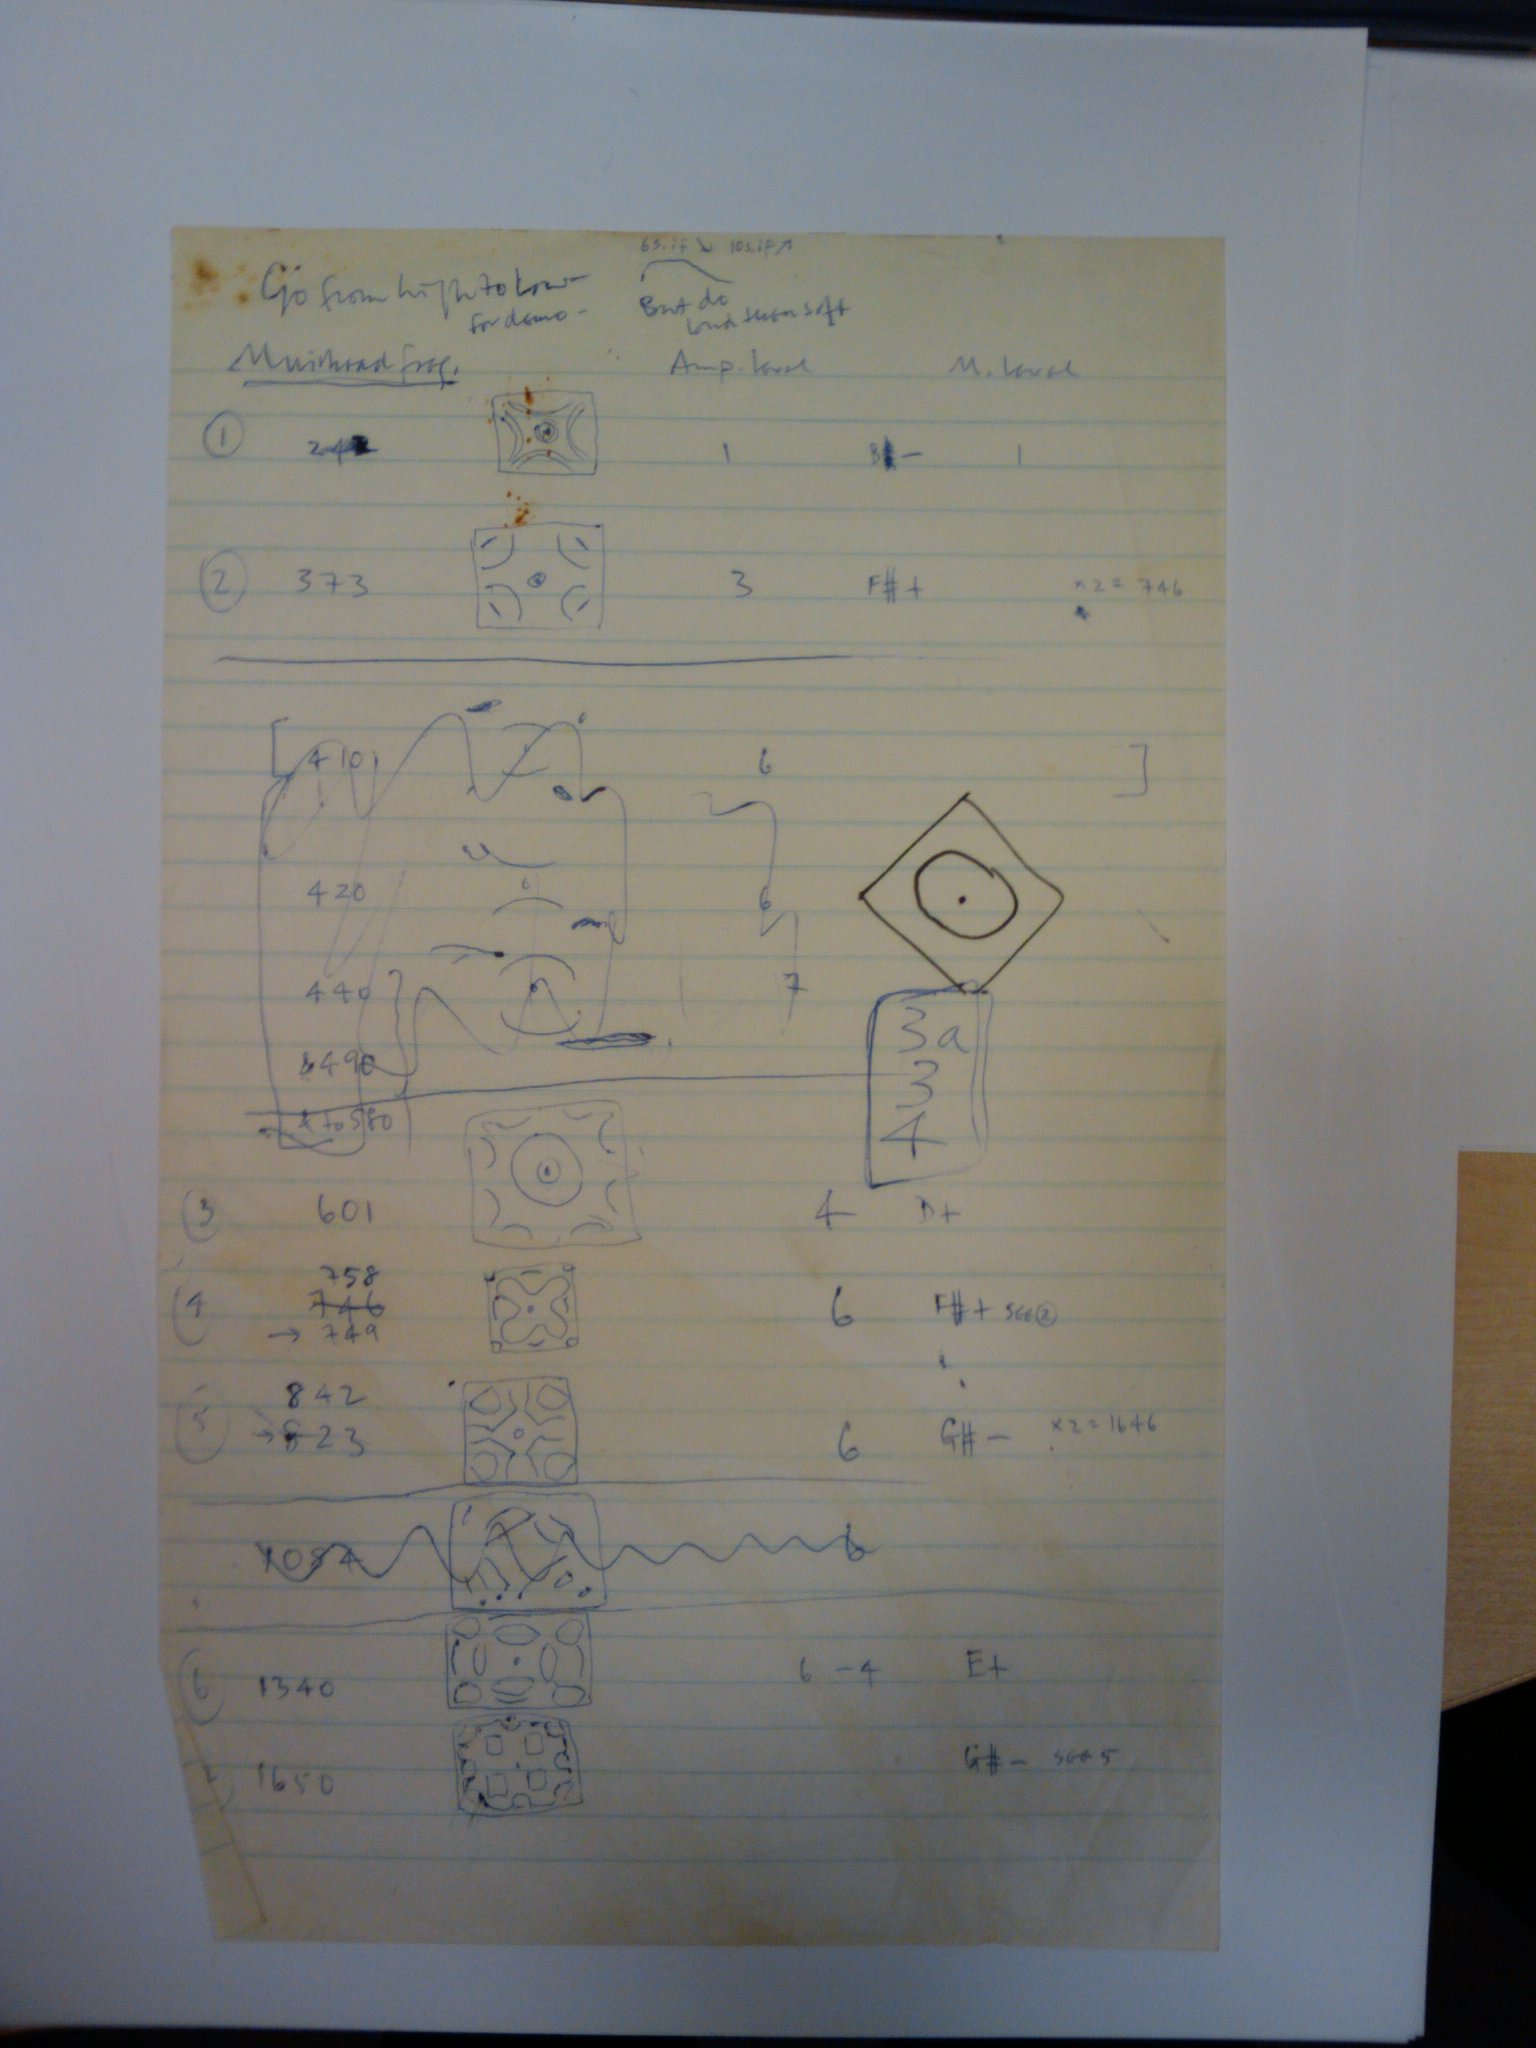 Go from high to low
for demo -
But do
loud then soft
Muirhead freq. Amp. level M. level
1 1 B - 1
2 373 3 F# + x2 = 746
[ 410 6 ]
420 6
440 7
490
to 580
3a
3
4
3 601 4 D+
758
4 746 6 F# + see 2
→ 749
842
5 → 823 6 G# - x2 = 1646
1084 6
6 1340 6 - 4 E+
1650 G# - see 5